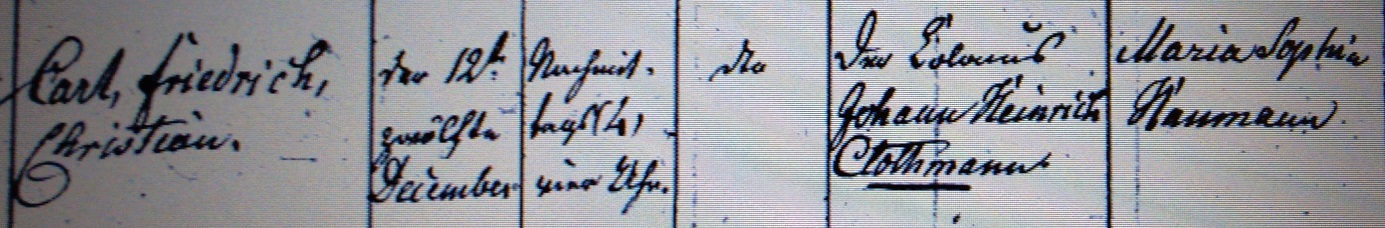 Carl, Friedrich,
Christian.
der 12t
zwölfte
December
Nachmit-
tags (4)
vier Uhr.
dto
Der Colonus
Johann Heinrich
Clothmann
Maria Sophia
Naumann